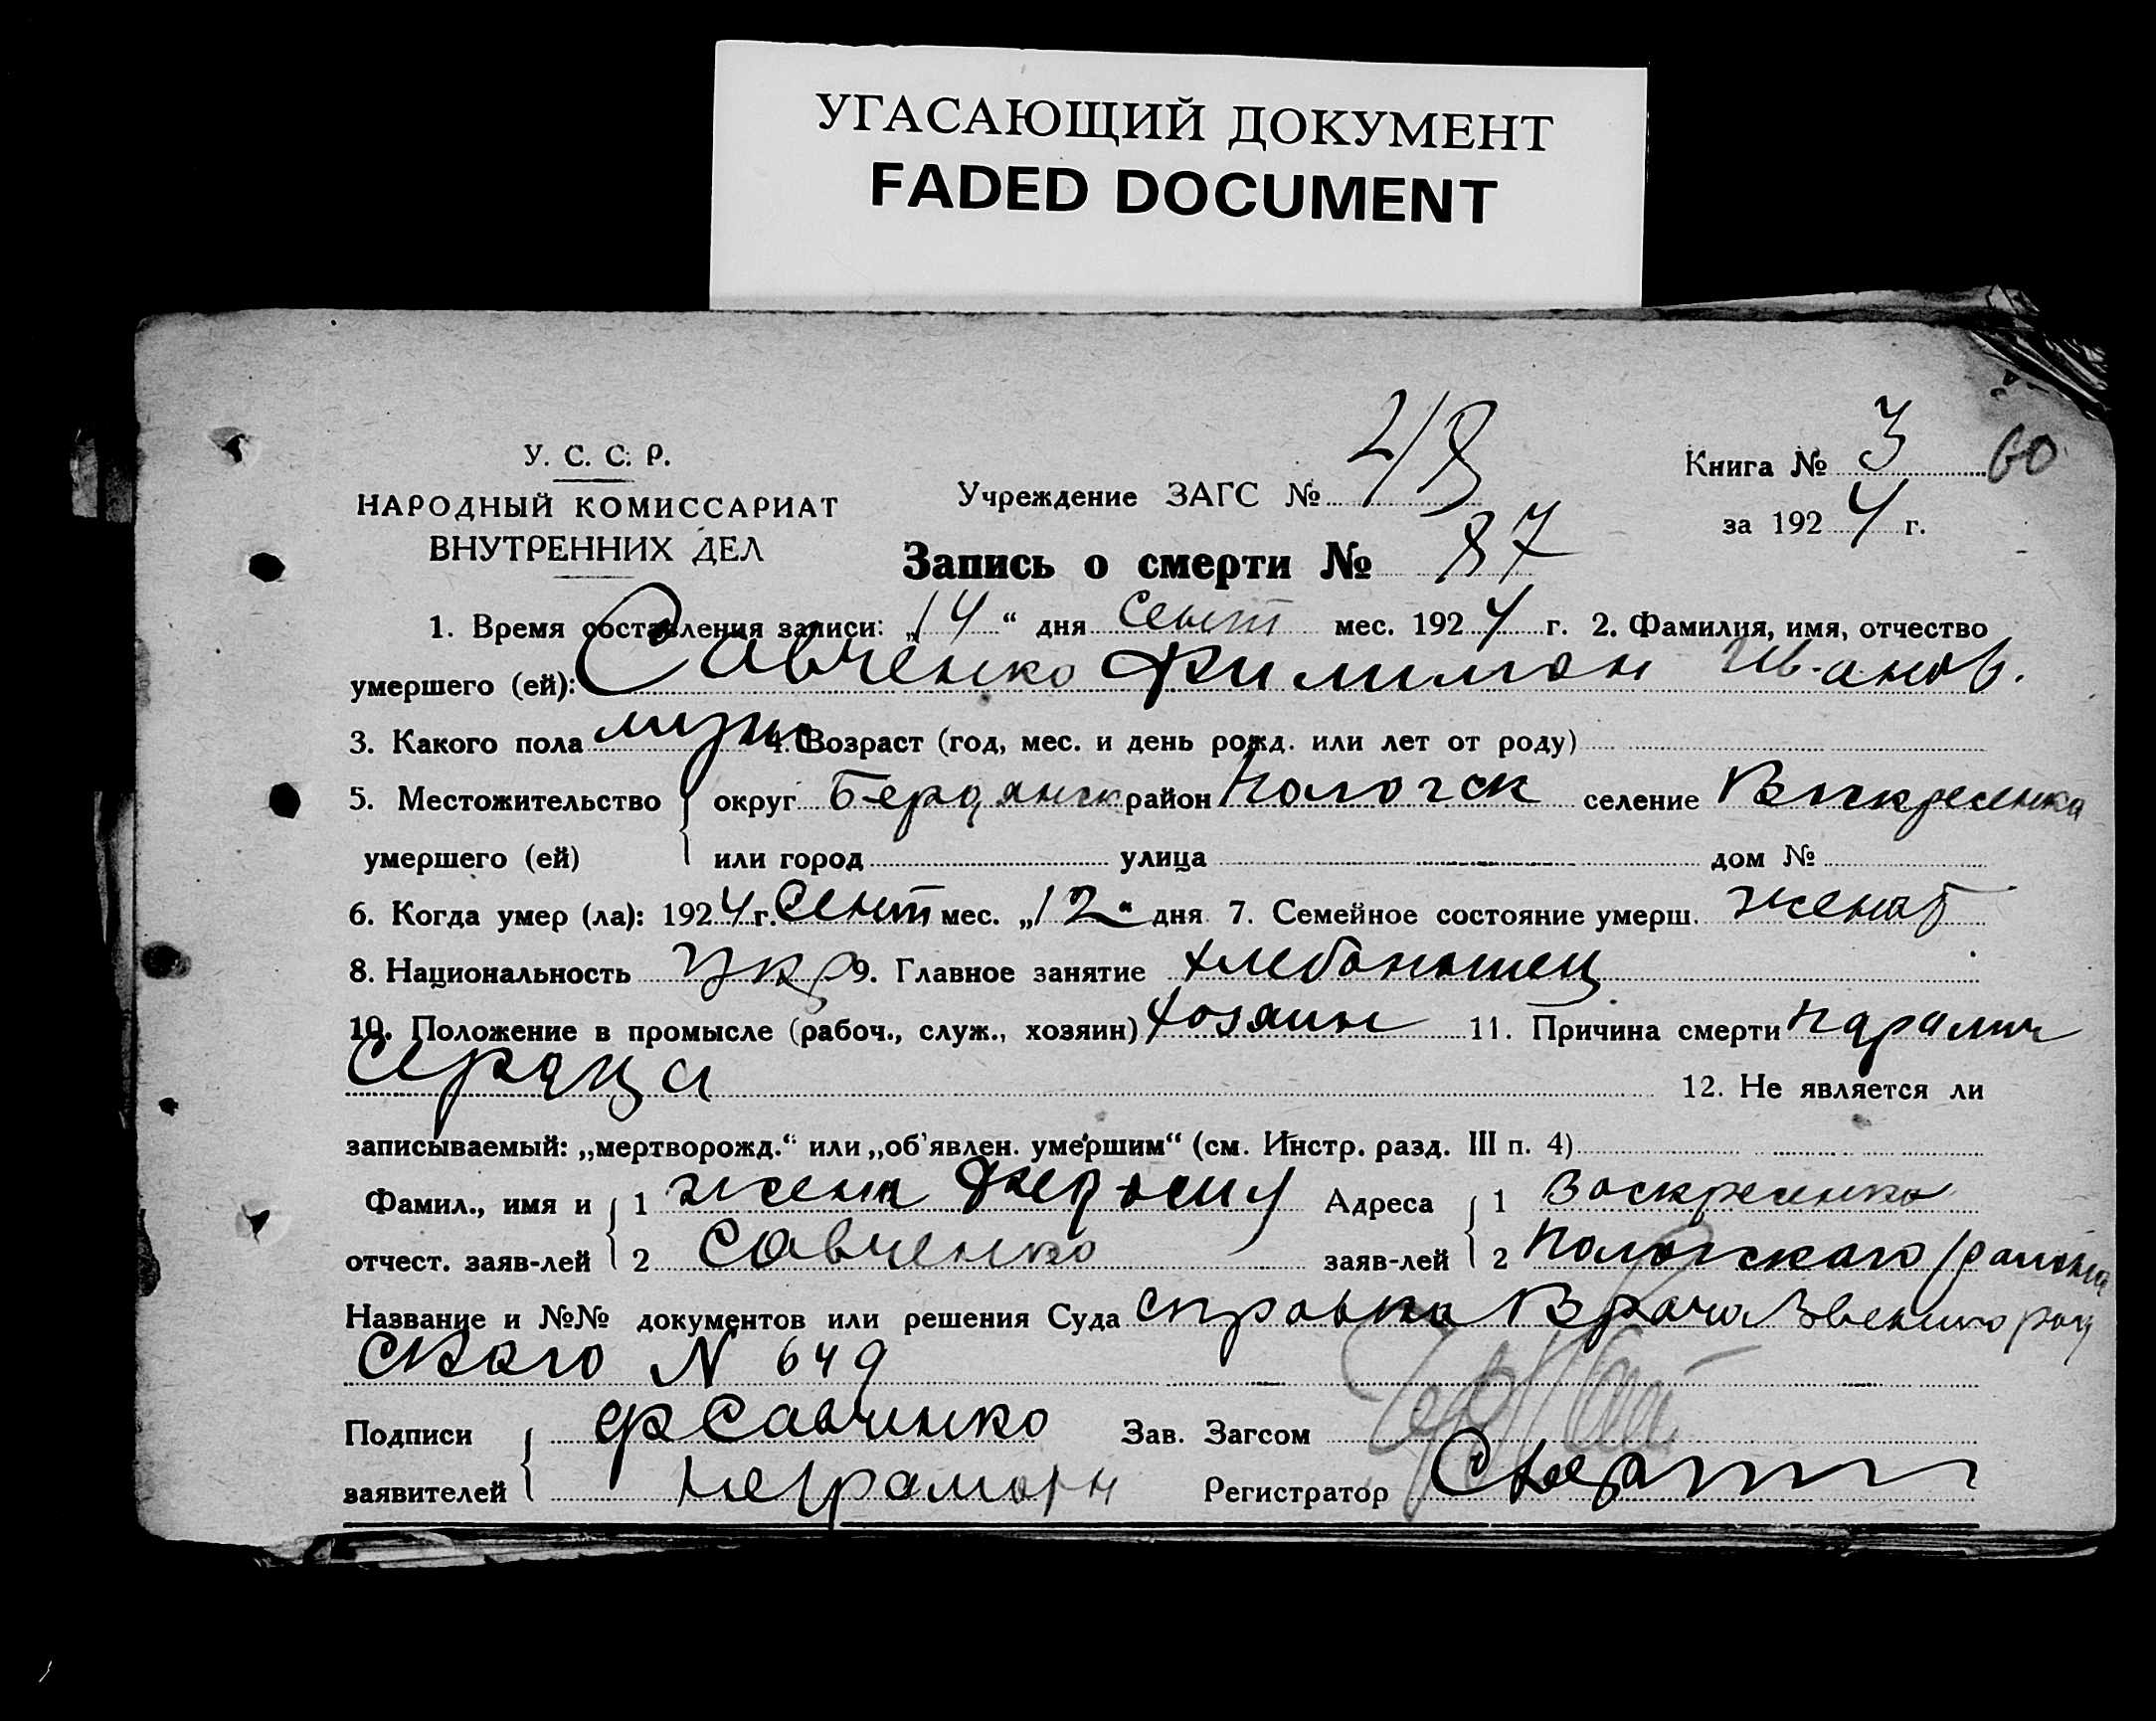 УГАСАЮЩИЙ ДОКУМЕНТ
FADED DOCUMENT
У. С. С. Р.
НАРОДНЫЙ КОМИССАРИАТ
ВНУТРЕННИХ ДЕЛ
Учреждение ЗАГС №
Книга № 3 60
за 1924 г.
Запись о смерти № 87
1. Время составления записи: „14“ дня Сент мес. 1924 г. 2. Фамилия, имя, отчество
умершего (ей): Савченко Филимон Иванов.
3. Какого пола муж 4. Возраст (год, мес. и день рожд. или лет от роду)
5. Местожительство округ Бердянск район Пологск селение Воскресенка
умершего (ей) или город улица дом №
6. Когда умер (ла): 1924 г. Сент мес. „12“ дня 7. Семейное состояние умерш. женат
8. Национальность укр 9. Главное занятие хлебопашец
10. Положение в промысле (рабоч., служ., хозяин) хозяин 11. Причина смерти паралич
сердца 12. Не является ли
записываемый: „мертворожд.“ или „об'явлен. умершим“ (см. Инстр. разд. III п. 4)
Фамил., имя и 1 жена Адреса 1 Воскресенка
отчест. заяв-лей 2 Савченко заяв-лей 2 Пологскаго района
Название и №№ документов или решения Суда справка Врача Звенигород
скаго N 649
Подписи Ф Савченко Зав. Загсом
заявителей неграмотн Регистратор